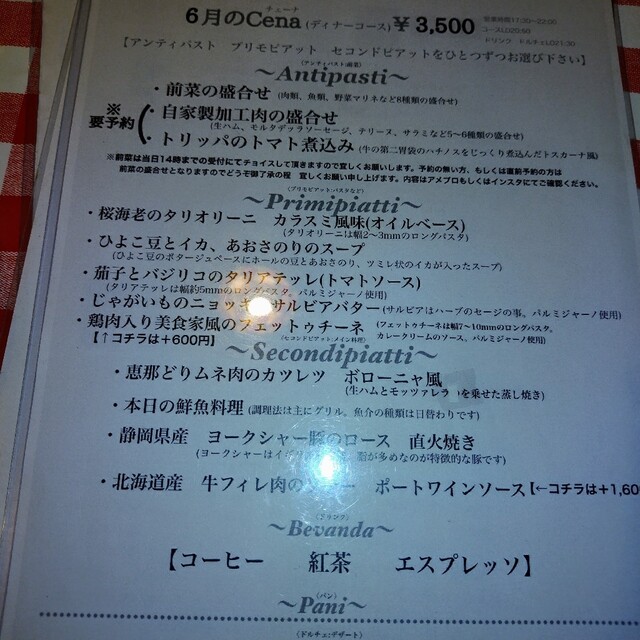 チェーナ
6月のCena (ディナーコース) ¥ 3,500
営業時間17:30~22:00
コースLO20:50
ドリンク ドルチェLO21:30
【アンティパスト プリモピアット セコンドピアットをひとつずつお選び下さい】
(アンティパスト:前菜)
~Antipasti~
・前菜の盛合せ (肉類、魚類、野菜マリネなど8種類の盛合せ)
※
要予約
・自家製加工肉の盛合せ
(生ハム、モルタデッラソーセージ、テリーヌ、サラミなど5~6種類の盛合せ)
・トリッパのトマト煮込み (牛の第二胃袋のハチノスをじっくり煮込んだトスカーナ風)
※前菜は当日14時までの受付にてチョイスして頂きますので宜しくお願いします。予約の無い方、もしくは直前予約の方は
前菜の盛合せとなりますのでどうぞ御了承の程 宜しくお願い申し上げます。内容はアメブロもしくはインスタにてご確認ください。
(プリモピアット:パスタなど)
~Primipiatti~
・桜海老のタリオリーニ カラスミ風味(オイルベース)
(タリオリーニは幅2~3mmのロングパスタ)
・ひよこ豆とイカ、あおさのりのスープ
(ひよこ豆のポタージュベースにホールの豆とあおさのり、ツミレ状のイカが入ったスープ)
・茄子とバジリコのタリアテッレ(トマトソース)
(タリアテッレは幅約5mmのロングパスタ、パルミジャーノ使用)
・じゃがいものニョッキ サルビアバター(サルビアはハーブのセージの事、パルミジャーノ使用)
・鶏肉入り美食家風のフェットゥチーネ (フェットゥチーネは幅7~10mmのロングパスタ。
カレークリームのソース、パルミジャーノ使用)
【↑コチラは+600円】
(セコンドピアット:メイン料理)
~Secondipiatti~
・恵那どりムネ肉のカツレツ ボローニャ風
(生ハムとモッツァレラ を乗せた蒸し焼き)
・本日の鮮魚料理 (調理法は主にグリル、魚介の種類は日替わりです)
・静岡県産 ヨークシャー豚のロース 直火焼き
(ヨークシャーはイギ 脂が多めなのが特徴的な豚です)
・北海道産 牛フィレ肉の ポートワインソース【←コチラは+1,60
(ドリンク)
~Bevanda~
【コーヒー 紅茶 エスプレッソ】
(パン)
~Pani~
(ドルチェ:デザート)